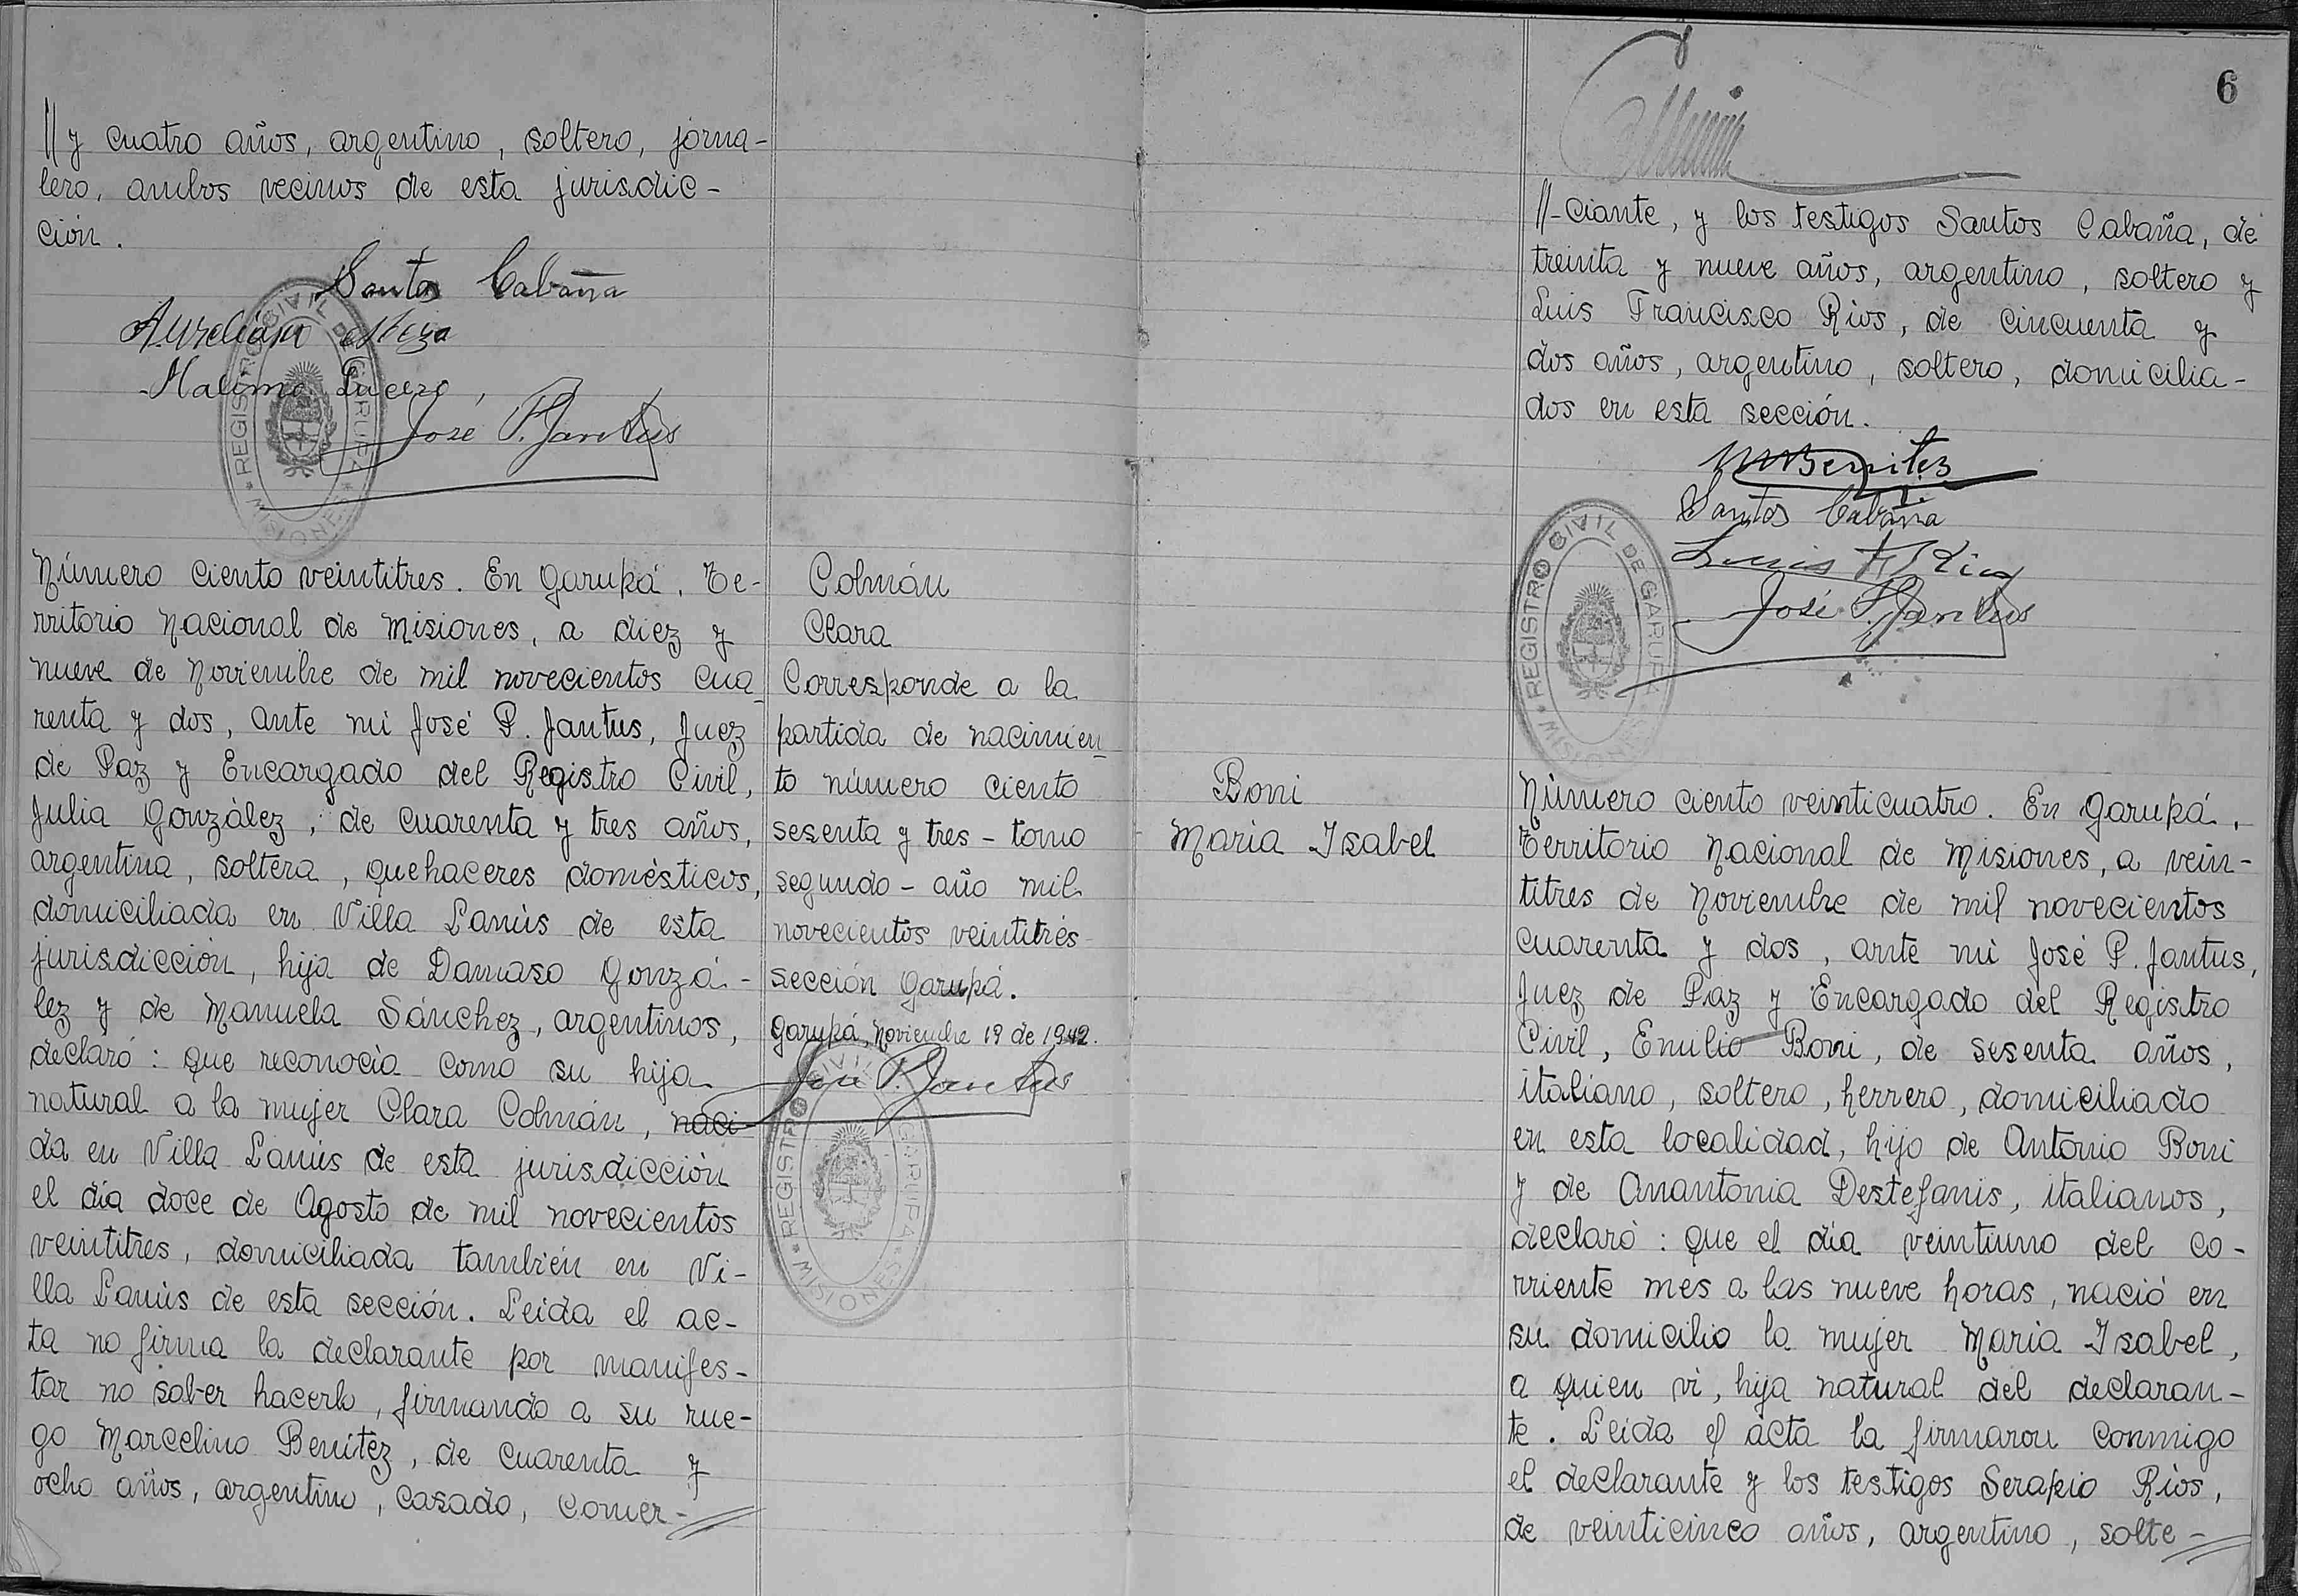 // y cuatro años, argentino, soltero, jorna-
lero, ambos vecinos de esta jurisdic-
ción.
Santos Cabaña
Aureliano
Maximo Lucero
José P. Jantus
REGISTRO CIVIL DE GARUPÁ
MISIONES
Número ciento veintitres. En Garupá, Te-
rritorio Nacional de Misiones, a diez y
nueve de Noviembre de mil novecientos cua-
renta y dos, ante mi José P. Jantus, Juez
de Paz y Encargado del Registro Civil,
Julia González, de cuarenta y tres años,
argentina, soltera, quehaceres domésticos,
domiciliada en Villa Lanús de esta
jurisdicción, hija de Damaso Gonzá-
lez y de Manuela Sánchez, argentinos,
declaró: que reconocía como su hija
natural a la mujer Clara Colmán, naci-
da en Villa Lanús de esta jurisdicción
el día doce de Agosto de mil novecientos
veintitres, domiciliada también en Vi-
lla Lanús de esta sección. Leida el ac-
ta no firma la declarante por manifes-
tar no saber hacerlo, firmando a su rue-
go Marcelino Benítez, de cuarenta y
ocho años, argentino, casado, comer-//
Colmán
Clara
Corresponde a la
partida de nacimien-
to número ciento
sesenta y tres - tomo
segundo - año mil
novecientos veintitrés
sección Garupá.
Garupá, Noviembre 19 de 1942.
José P. Jantus
REGISTRO CIVIL DE GARUPÁ
MISIONES
6
//-ciante, y los testigos Santos Cabaña, de
treinta y nueve años, argentino, soltero y
Luis Francisco Ríos, de cincuenta y
dos años, argentino, soltero, domicilia-
dos en esta sección.
M Benitez
Santos Cabaña
Luis F. Rios
José P. Jantus
REGISTRO CIVIL DE GARUPÁ
MISIONES
Boni
María Isabel
Número ciento veinticuatro. En Garupá,
Territorio Nacional de Misiones, a vein-
titres de Noviembre de mil novecientos
cuarenta y dos, ante mi José P. Jantus,
Juez de Paz y Encargado del Registro
Civil, Emilio Boni, de sesenta años,
italiano, soltero, herrero, domiciliado
en esta localidad, hijo de Antonio Boni
y de Anantonia Destefanis, italianos,
declaró: que el día veintiuno del co-
rriente mes a las nueve horas, nació en
su domicilio la mujer María Isabel,
a quien ví, hija natural del declaran-
te. Leída el acta la firmaron conmigo
el declarante y los testigos Serapio Ríos,
de veinticinco años, argentino, solte-//